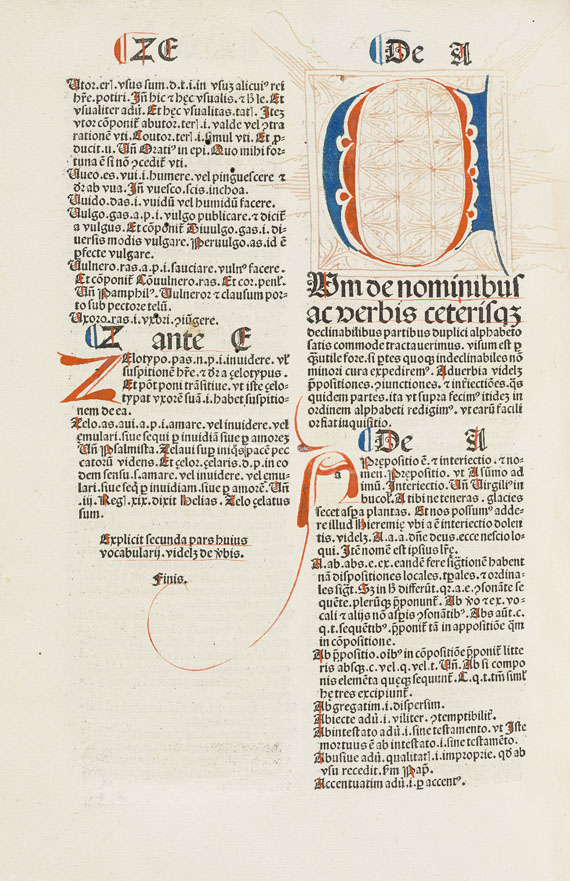 ZE
Utor.eris.vsus sum.d.t.i.in vsuz alicuiꝰ rei
hr̄e.potiri. Jn̄ hic ⁊ hęc vsualis.⁊ h̄ le. Et
vsualiter adū. Et hęc vsualitas.tatꝭ. Jtez
vtor cōponit̄ abutor.terꝭ.i.valde vel ꝯtra
rationē vti. Coutor.terꝭ.i.simul vti. Et ꝓ-
ducit.u. Un̄ Oratiꝰ in epi. Quo mihi for-
tuna ē si nō ꝯcedit̄ vti.
Uueo.es.vui.i.humere.vel pinguescere ⁊
dr̄ ab vua. Jn̄ vuesco.scis.inchoa.
Uuido.das.i.vuidū vel humidū facere.
Uulgo.gas.a.p.i.vulgo publicare.⁊ dicit̄
a vulgus. Et cōponit̄ Diuulgo.gas.i.di-
uersis modis vulgare. Peruulgo.as.id ē
ꝑfecte vulgare.
Uulnero.ras.a.p.i.sauciare.vulnꝰ facere.
Et cōponit̄ Cōuulnero.ras. Et cor.penlꝭ.
Un̄ Pamphilꝰ. Uulneror ⁊ clausum por-
to sub pectore telū.
Uxoro.ras.i.vxori.ꝯiūgere.
Z ante E
Zelotypo.pas.n.p.i.inuidere.vl̓
suspitionē hr̄e.⁊ dr̄ a çelotypus.
Et pōt poni trāsitiue.vt iste çelo-
typat vxorē suā.i.habet suspitio-
nem de ea.
Zelo.as.aui.a.p.i.amare.vel inuidere.vel
ęmulari.siue sequi ꝑ inuidiā siue ꝑ amorez
Un̄ Psalmista. Zelaui suꝑ iniqꝭ pacē pec
catorū videns. Et çelor.çelaris.d.p.in eo
dem sensu.s.amare.vel inuidere.vel ęmu-
lari.siue seq̄ ꝑ inuidiam siue ꝑ amorē. Un̄
.iij. Reg.xix.dixit Helias. Zelo çelatus
sum.
Explicit secunda pars huius
vocabularij.videlꝫ de v̓bis.
Finis.
De A
CUm de nominibus
ac verbis ceterisqꝫ
declinabilibus partibus duplici alphabeto
satis commode tractauerimus.visum est ꝑ
q̄utile fore.si ꝑtes quoqꝫ indeclinabiles nō
minori cura expedirem. Aduerbia videlꝫ
p̄positiones.ꝯiunctiones.⁊ int̓iectiōes.q̄s
quidem partes.ita vt supra fecimꝰ itidez in
ordinem alphabeti redigimꝰ.vt earū facili
or fiat inquisitio.
De A
a Prępositio ē.⁊ interiectio.⁊ no-
men. Prępositio.vt Asūmo ad
mū. Jnteriectio. Un̄ Uirgiliꝰ in
bucol̓. A tibi ne teneras.glacies
secet aspa plantas. Et nos possumꝰ adde-
re illud Hieremię vbi a ē interiectio dolen
tis.videlꝫ. A.a.a.dn̄e deus.ecce nescio lo-
qui. Jtē nomē est ipsius lr̄ę.
A.ab.abs.e.ex.eandē fere sig̓tionē habent
nā dispositiones locales.tꝑales.⁊ ordina-
les sigt̓. Sꝫ in h̄ differūt.qr.a.e.ꝯsonāte se
quēte.plerūqꝫ p̄ponunt̄. Ab v̓o ⁊ ex.vo-
cali ⁊ alijs nō asꝑis ꝯsonātibꝰ. Abs aūt.c.
q.t.sequētibꝰ.p̄ponit̄ tā in appositiōe q̄m
in cōpositione.
Ab p̄positio.oībꝰ in cōpositiōe p̄ponit̄ litte
ris absqꝫ.c.vel.q.vel.t. Un̄. Ab si compo
nis elemēta quęqꝫ sequunt̄. C.q.t.tm̄ siml̓
hę tres excipiunt̄.
Abgregatim.i.dispersim.
Abiecte adū.i.viliter.ꝯtemptibilit̓.
Abintestato adū.i.sine testamento.vt Jste
mortuus ē ab intestato.i.sine testamēto.
Abusiue adū.qualitatꝭ.i.improprie.qd̄ ab
vsu recedit.ẜm Pap̄.
Accentuatim adū.i.ꝑ accentꝰ.